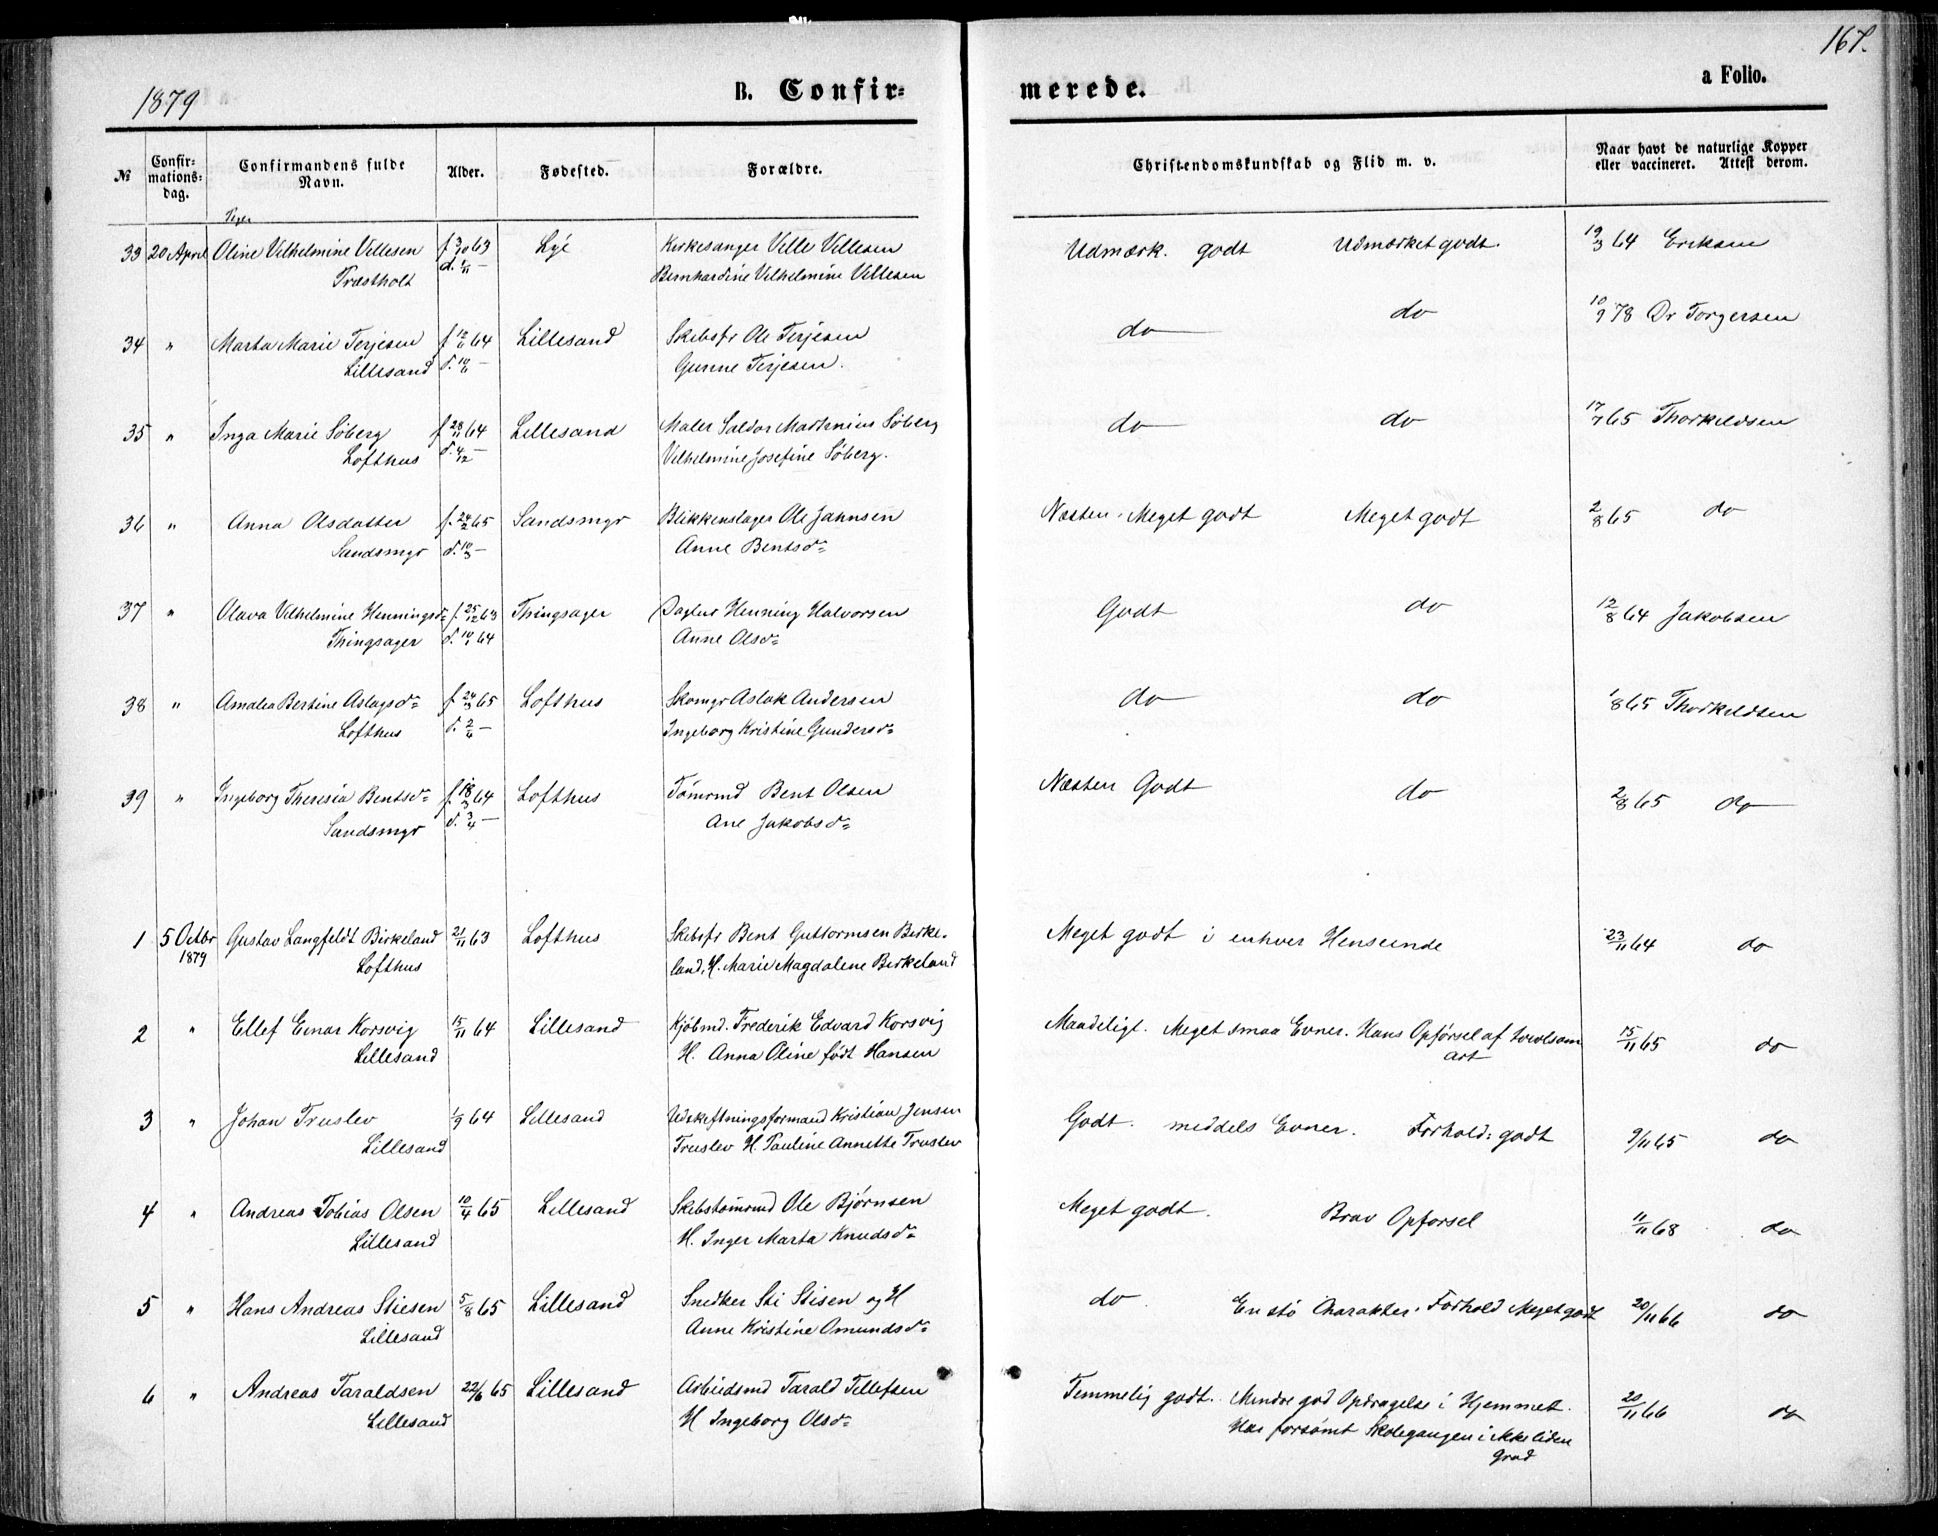 167.
1879
B. Confirmerede.
a Folio.
№ Confirmationsdag. Confirmandens fulde Navn. Alder. Fødested. Forældre. Christendomskundskab og Flid m. v. Naar havt de naturlige Kopper eller vaccineret. Attest derom.
Piger
33 20 April Oline Vilhelmine Villesen f 3/10 63 Kirkesanger Ville Villesen Udmærk. godt Udmærket godt. 19/3 64 Eriksen
Træstholt d. 1/11 — Bernhardine Vilhelmine Villesen
34 " Marta Marie Terjesen f 12/6 64 Lillesand Skibsfr Ole Terjesen do do 10/9 78 Dr Torgersen
Lillesand d. — Gunne Terjesen.
35 " Inga Marie Søberg f 28/11 64 Lillesand Maler Saldor Martinius Søberg do do 17/7 65 Thorkildsen
Lofthus d. 4/12 — Vilhelmine Josefine Søberg.
36 " Anna Olsdatter f. 24/2 65 Sandsmyr Blikkenslager Ole Jahnsen Næsten Meget godt Meget godt 2/8 65 do
Sandsmyr d. 10/3 — Anne Bentsd=
37 " Olava Vilhelmine Henningsd= f. 25/12 63 Thingsager Henning Halvorsen Godt do 12/8 64 Jakobsen
Thingsager d. 10/1 64 Anne Olsd=
38 " Amalia Bertine Aslagsd= f. 24/3 65 Lofthus Skomgr Aslak Andersen do do 1/8 65 Thorkildsen
Lofthus d. 2/6 — Ingeborg Kristine Gundersd=
39 " Ingeborg Theresia Bentsd= f. 18/3 64 Lofthus Tømrmd Bent Olsen Næsten Godt do 2/8 65 do
Sandsmyr d. 3/4 — Ane Jakobsd=
1 5 Octbr Gustav Langfeldt Birkeland 21/11 63 Lofthus Skibsfr Bent Guttormsen Birke- Meget godt i enhver Henseende 23/11 64 do
1879 Lofthus land, H. Marie Magdalene Birkeland
2 " Ellef Einar Korsvig 15/11 64 Lillesand Kjøbmd. Frederik Edvard Korsvig Maadeligt. Meget smaa Evner. Hans Opførsel af tvivlsom 15/11 65 do
Lillesand H. Anna Oline født Hansen Art
3 " Johan Truslev 1/9 64 Lillesand Udskiftningsformand Kristian Jensen Godt. middels Evner. Forhold: godt 9/11 65 do
Lillesand Truslev H. Pauline Annette Truslev
4 " Andreas Tobias Olsen 10/4 65 Lillesand Skibstømrmd Ole Bjørnsen Meget godt. Brav Opførsel 11/11 68 do
Lillesand H. Inger Marta Knudsd=
5 " Hans Andreas Stiesen 5/8 65 Lillesand Snedker Sti Stisen og H do En stø Charakter. Forhold Meget godt 20/11 66 do
Lillesand Anne Kristine Omundsd=
6 " Andreas Taraldsen 22/6 65 Lillesand Arbeidsmd Tarald Tellefsen Temmelig godt. Mindre god Opdragelse i Hjemmet. 20/11 66 do
Lillesand H Ingeborg Olsd= Har forsømt Skolegangen i ikke liden
Grad